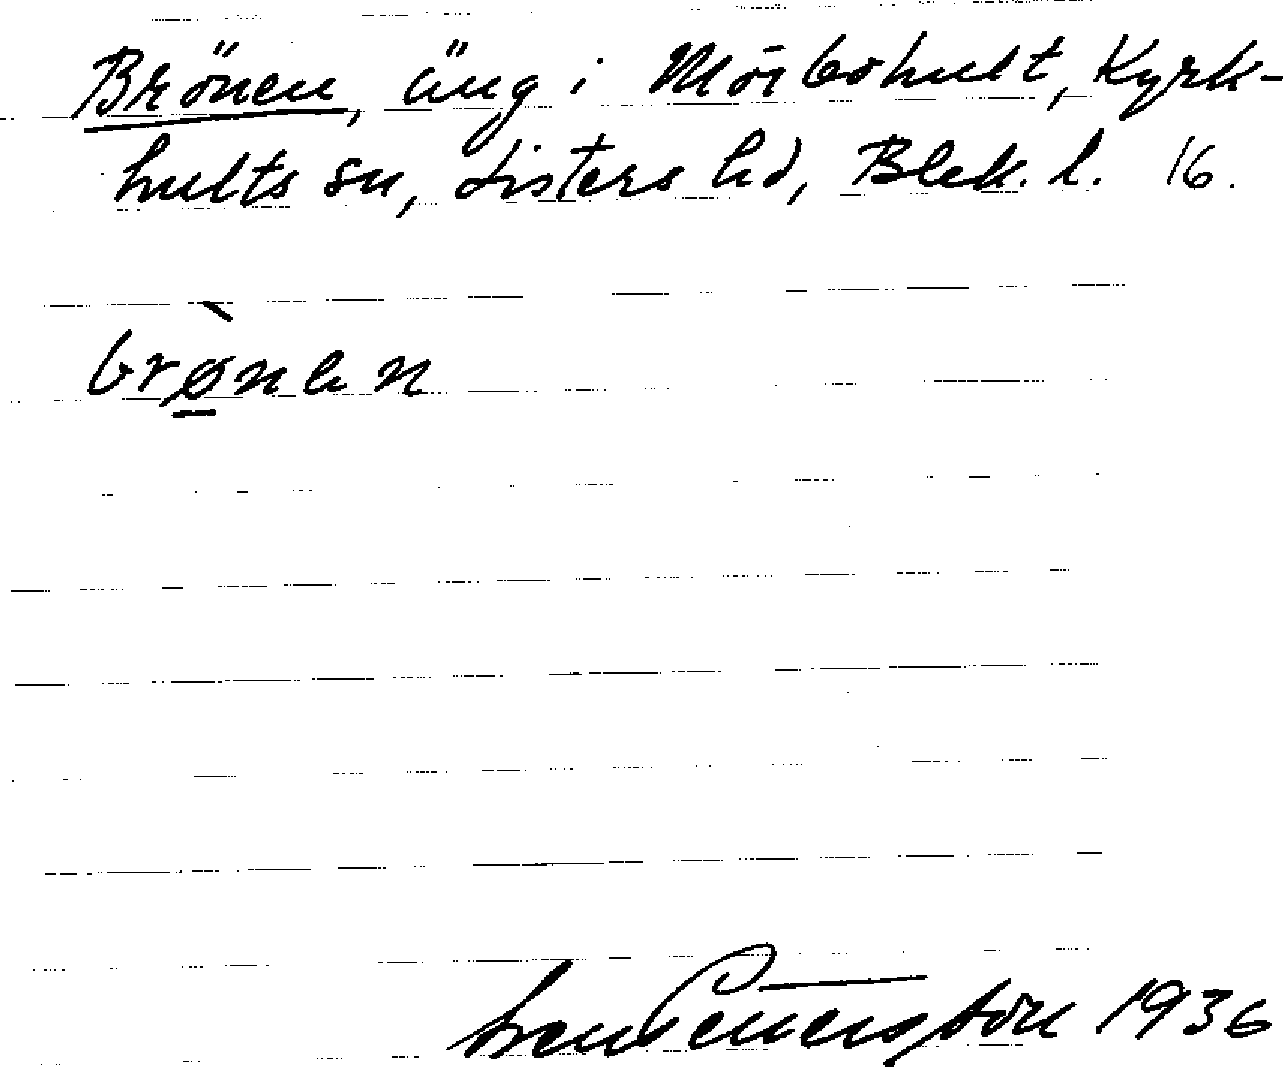 Brönen, äng i Mörbohult, Kyrk-
hults sn, Listers hd, Blek. l. 16.
brø̲̀nen
Sven Benson 1936